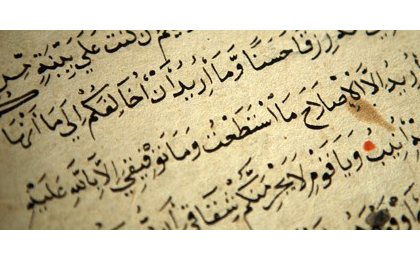 إِن كُنتُ عَلَىٰ بَيِّنَةٍ
رِزْقًا حَسَنًا وَمَا أُرِيدُ أَنْ أُخَالِفَكُمْ إِلَىٰ مَا أَنْهَا
أُرِيدُ إِلَّا الْإِصْلَاحَ مَا اسْتَطَعْتُ وَمَا تَوْفِيقِي إِلَّا بِاللَّهِ عَلَيْهِ
أُنِيبُ وَيَا قَوْمِ لَا يَجْرِمَنَّكُمْ شِقَاقِي